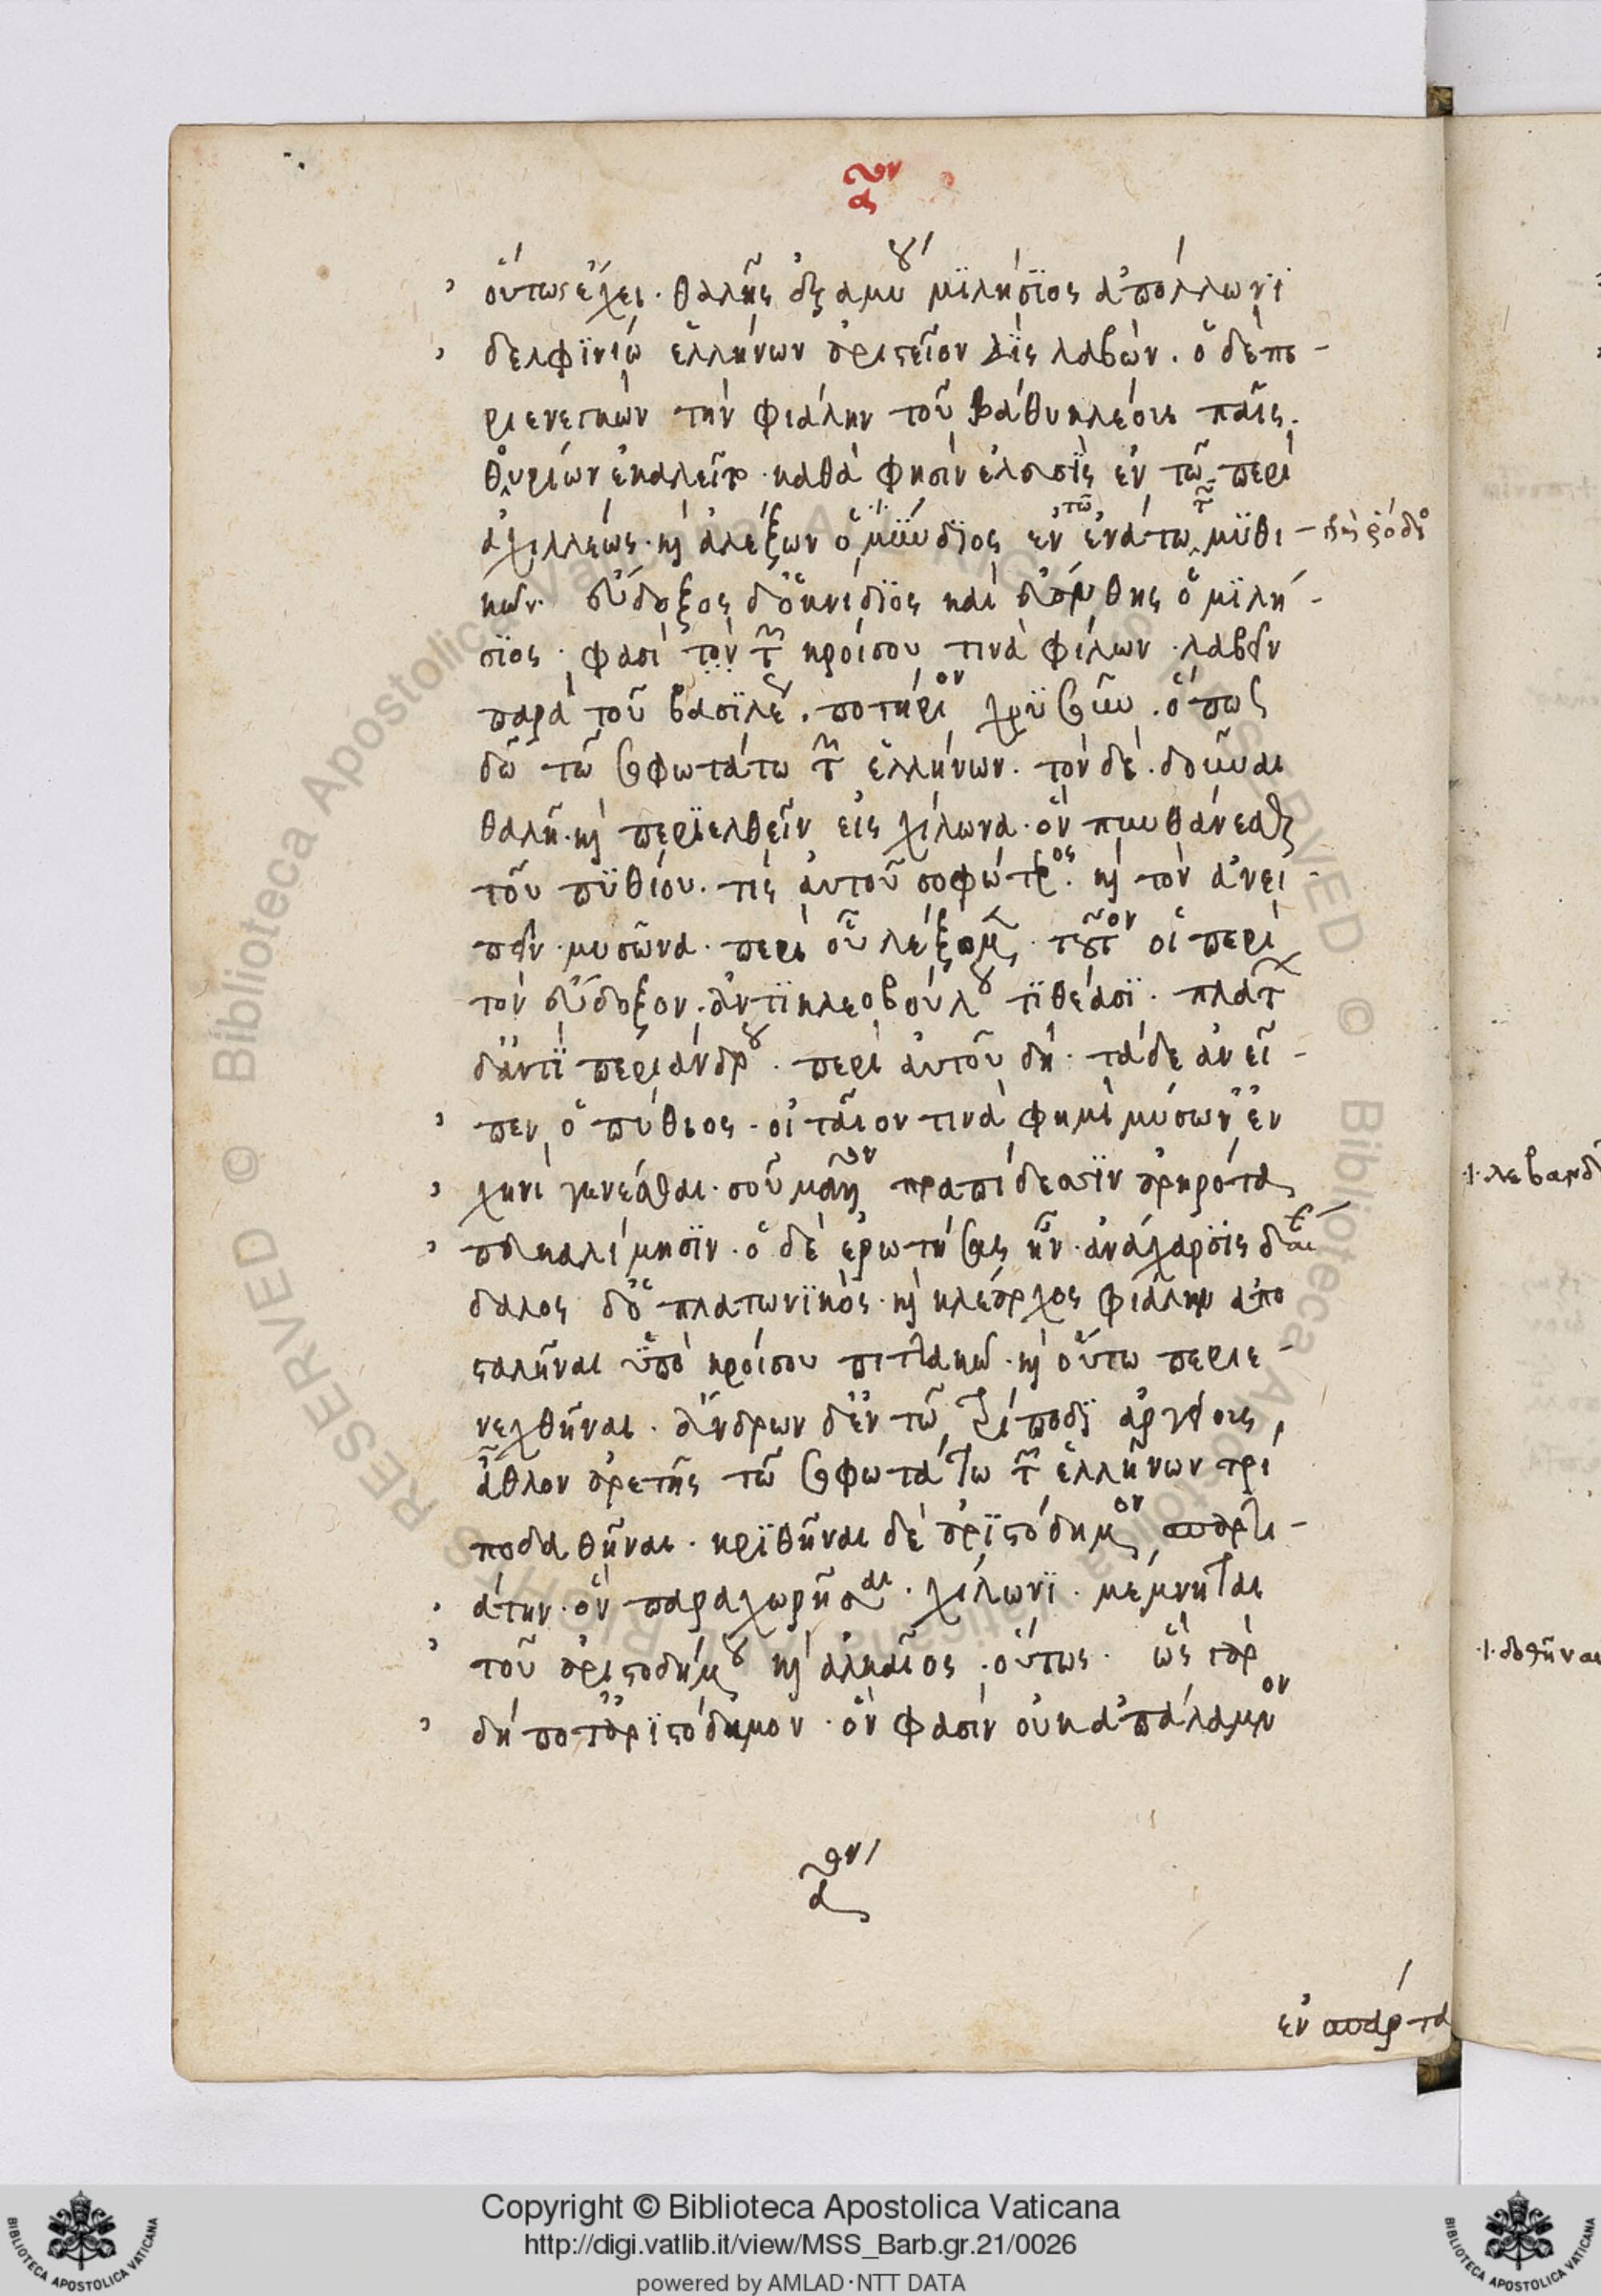 οὕτως ἔχει. θαλῆς ἐξαμύου μϊλήσϊος ἀπόλλωνϊ
δελφϊνίω ἑλλήνων ἀριστεῖον δὶς λαβών. ὁ δὲ πε-
ριενεγκὼν τὴν φιάλην τοῦ βάθυκλέους παῖς.
θυρίων ἐκαλεῖτο. καθά φησὶν ἐλευσϊς ἐν τῶ περὶ
ἀχιλλέως. καὶ ἀλέξων ὁ μϋνδϊος ἐν ἐνάτω μϋθι-
κῶν. εὔδοξος δ' ὁ κνίδϊος καὶ εὐάνθης ὁ μϊλή-
σϊος. φασὶ τὸν τῶν κροίσου τινὰ φίλων. λαβεῖν
παρὰ τοῦ βασϊλέως. ποτήριον χρϋσοῦν. ὅπως
δῶ τῶ σοφωτάτω τῶν ἑλλήνων. τὸν δὲ. δοῦναι
θαλῆ. καὶ περϊελθεῖν εἰς χίλωνα. ὃν πυνθάνεσθαι
τοῦ πϋθίου. τίς αὐτοῦ σοφώτερος. καὶ τὸν ἀνει-
πεῖν. μυσῶνα. περὶ οὗ λέξομεν. τοῦτον οἱ περὶ
τὸν εὔδοξον. ἀντϊ κλεοβούλου τϊθέασϊ. πλάτων
δ' ἀντϊ περιάνδρου. περὶ αὐτοῦ δὴ. τάδε ἀνεῖ-
πεν ὁ πύθιος. οἰταῖον τινὰ φημὶ μύσων' ἐν
χηνὶ γενέσθαι. σοῦ μᾶλλον πραπίδεσσϊν ἀρηρότα
πευκαλίμησϊν. ὁ δὲ ἐρωτήσας ἦν. ἀνάχαρσϊς δαί
δαλος δ' ὁ πλατωνϊκὸς. καὶ κλέαρχος φιάλην ἀπο
σταλῆναι ὑπὸ κροίσου πιττακῶ. καὶ οὕτω περιε-
νεχθῆναι. ἄνδρων δ' ἐν τῶ τρίποδϊ ἀργείους
ἆθλον ἀρετῆς τῶ σοφωτάτω τῶν ἑλλήνων τρί
ποδα θῆναι. κρϊθῆναι δὲ ἀρϊστόδημον σπαρτι-
άτην. ὃν παραχωρῆσαι. χίλωνϊ. μέμνηται
τοῦ ἀριστοδήμου καὶ ἀλκαῖος. οὕτως. ὣς γὰρ
δήποτ' ἀρϊστόδημον. ὃν φασὶν οὐκ ἀπάλαμνον
ἐν σπάρτα
Copyright © Biblioteca Apostolica Vaticana
http://digi.vatlib.it/view/MSS_Barb.gr.21/0026
powered by AMLAD·NTT DATA